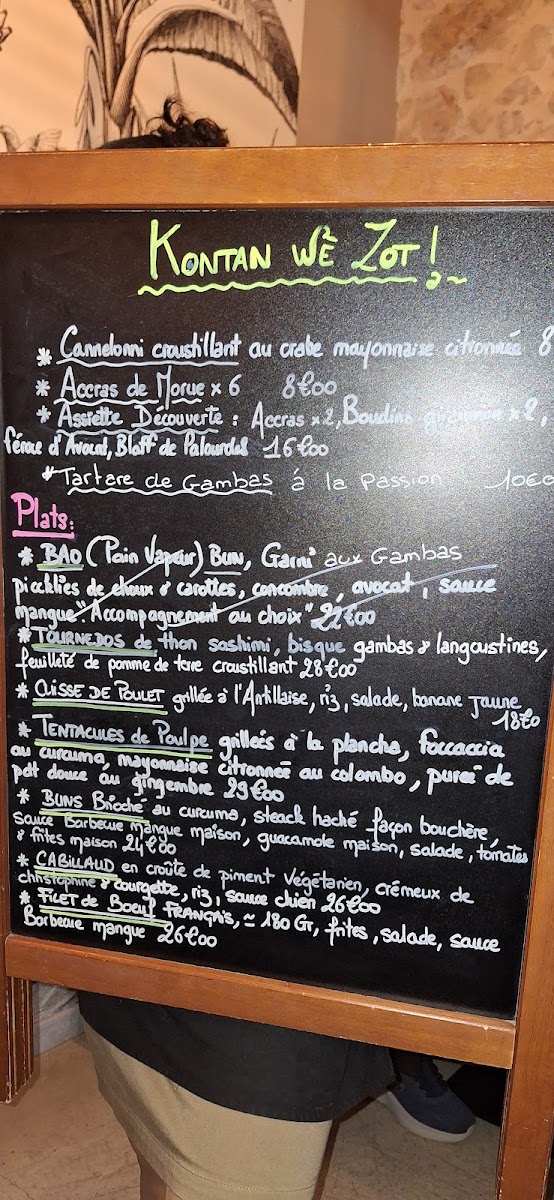 KONTAN WÈ ZOT !
* Cannelonni croustillant au crabe mayonnaise citronnée 8
* Accras de Morue x 6 8€00
* Assiette Découverte : Accras x 2, Boudins x 2,
féroce d'Avocat, Blaff de Palourdes 16€00
* Tartare de Gambas à la Passion 10€0
Plats:
* BAO (Pain Vapeur) BUN, Garni aux Gambas
pickklies de choux & carottes, concombre, avocat, sauce
mangue. "Accompagnement au choix" 22€00
* TOURNEDOS de thon sashimi, bisque gambas & langoustines,
feuilleté de pomme de terre croustillant 28€00
* CUISSE DE POULET grillée à l'Antillaise, riz, salade, banane jaune
18€0
* TENTACULES de Poulpe grillées à la plancha, foccaccia
au curcuma, mayonnaise citronnée au colombo, purée de
pat douce au gingembre 29€00
* BUNS Brioché au curcuma, steack haché façon bouchère,
sauce Barbecue mangue maison, guacamole maison, salade, tomates
& frites maison 24€00
* CABILLAUD en croûte de piment Végétarien, crémeux de
christophine & courgette, riz, sauce chien 26€00
* FILET de Boeuf FRANÇAIS, ≃ 180 Gr, frites, salade, sauce
Barbecue mangue 26€00